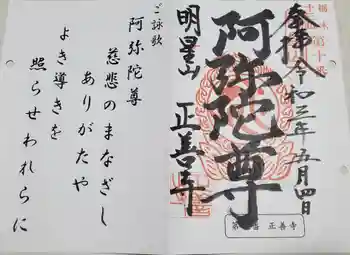 奉拝
令和三年 五月四日
阿弥陀尊
明星山 正善寺
正善寺
ご詠歌
阿弥陀尊
慈悲のまなざし
ありがたや
よき導きを
照らせわれらに